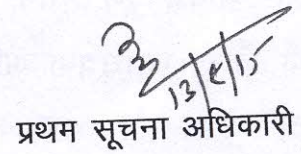 13/5/15
प्रथम सूचना अधिकारी